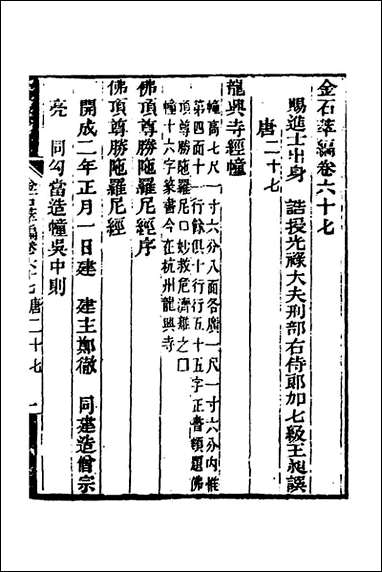 金石萃編卷六十七
賜進士出身 誥授光祿大夫刑部右侍郎加七級王昶譔
唐二十七
龍興寺經幢
幢高七尺一寸六分八面各廣一尺一寸六分内惟
第四面十一行餘俱十行行五十五字正書額題佛
頂尊勝陁羅尼□妙救危濟難之□
幢十六字篆書今在杭州龍興寺
佛頂尊勝陁羅尼經序
佛頂尊勝陁羅尼經
開成二年正月一日建 建主鄭徹 同建造僧宗
亮 同勾當造幢吳中則
金石萃編卷六十七 唐二十七 一